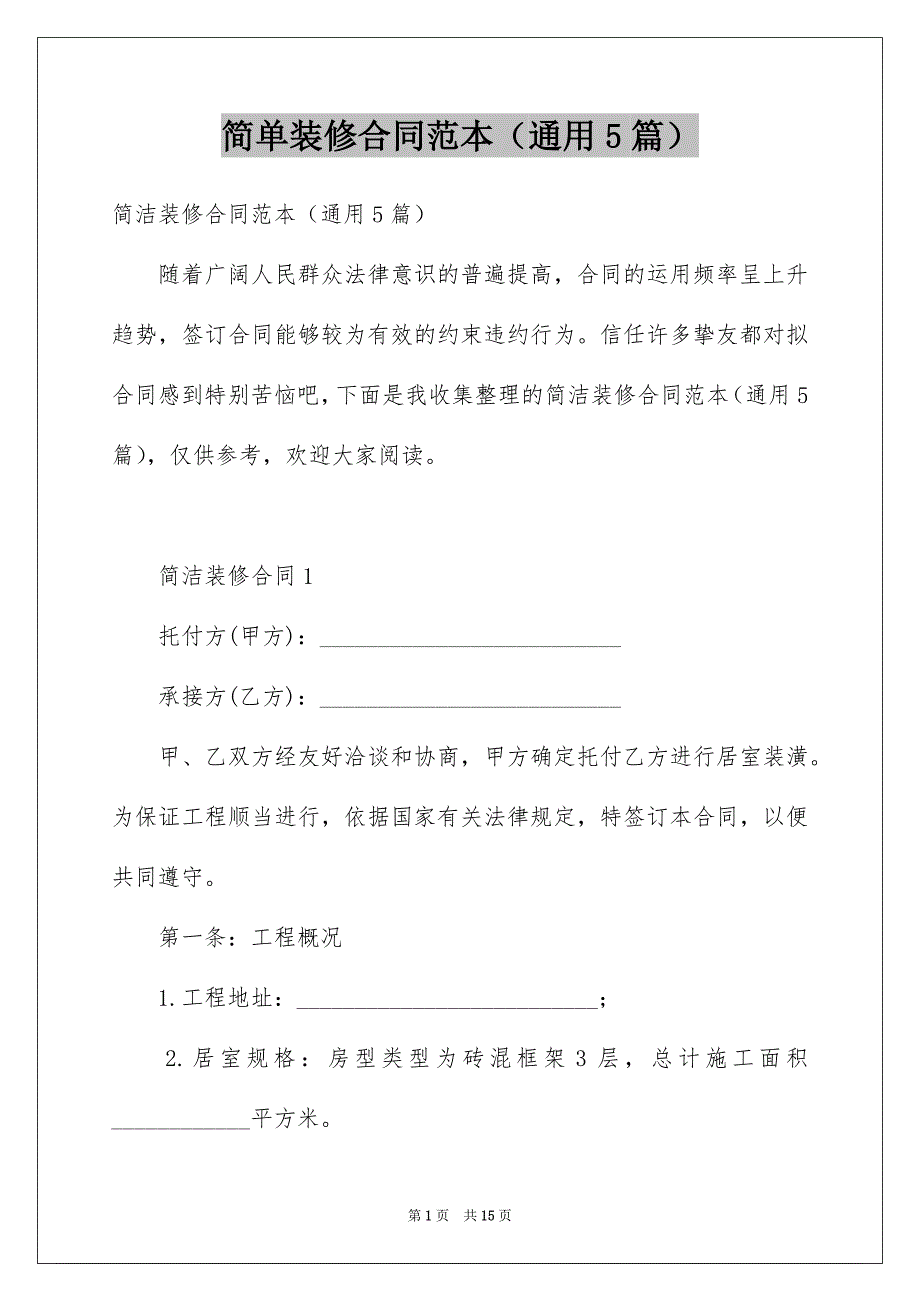 简单装修合同范本（通用5篇）
简洁装修合同范本（通用5篇）
随着广阔人民群众法律意识的普遍提高，合同的运用频率呈上升
趋势，签订合同能够较为有效的约束违约行为。信任许多挚友都对拟
合同感到特别苦恼吧，下面是我收集整理的简洁装修合同范本（通用5
篇），仅供参考，欢迎大家阅读。
简洁装修合同1
托付方(甲方)：__________________________
承接方(乙方)：__________________________
甲、乙双方经友好洽谈和协商，甲方确定托付乙方进行居室装潢。
为保证工程顺当进行，依据国家有关法律规定，特签订本合同，以便
共同遵守。
第一条：工程概况
1.工程地址：__________________________；
2.居室规格：房型类型为砖混框架3层，总计施工面积
____________平方米。
第1页 共15页